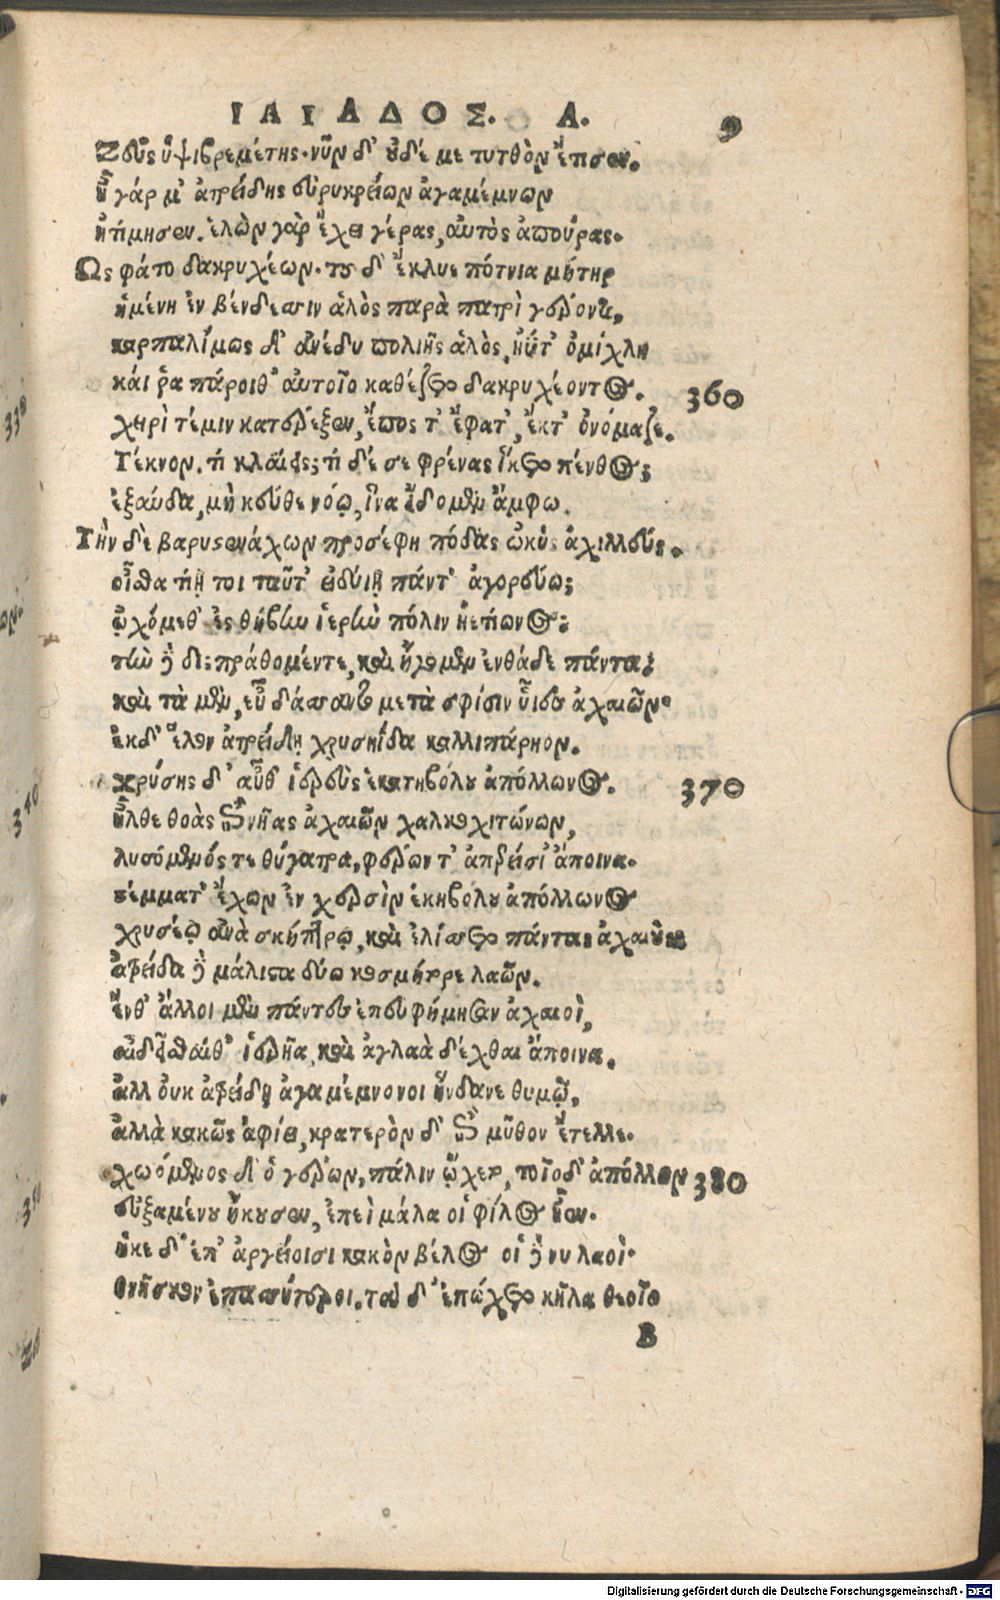 ΙΛΙΑΔΟΣ. Α. 9
Ζεὺς ὑψιβρεμέτης· νῦν δ' οὐδέ με τυτθὸν ἔτισεν.
ἦ γάρ μ' ἀτρείδης εὐρυκρείων ἀγαμέμνων
ἠτίμησεν. ἑλὼν γὰρ ἔχει γέρας, αὐτὸς ἀπούρας.
Ως φάτο δακρυχέων· τοῦ δ' ἔκλυε πότνια μήτηρ
ἡμένη ἐν βένθεσσιν ἁλὸς παρὰ πατρὶ γέροντι,
καρπαλίμως δ' ἀνέδυ πολιῆς ἁλὸς, ἠΰτ' ὀμίχλη
κάι ῥα πάροιθ' αὐτοῖο καθέζετο δακρυχέοντος. 360
χειρὶ τέμιν κατέρεξεν, ἔπος τ' ἔφατ', ἔκτ' ὀνόμαζε.
Τέκνον. τί κλαίεις; τί δέ σε φρένας ἵκετο πένθος;
ἐξαύδα, μὴ κεῦθε νόῳ, ἵνα εἴδομεν ἄμφω.
Τὴν δὲ βαρυστενάχων προσέφη πόδας ὠκὺς ἀχιλλεύς.
οἶσθα τίη τοι ταῦτ' εἰδύιῃ πάντ' ἀγορεύω;
ᾠχόμεθ' ἐς θήβην ἱερὴν πόλιν ἠετίωνος;
τὴν δὲ διεπράθομέντε, καὶ ἤγομεν ἐνθάδε πάντα;
καὶ τὰ μὲν, εὖ δάσσαντο μετὰ σφίσιν υἷες ἀχαιῶν·
ἐκδ' ἕλον ἀτρείδῃ χρυσηΐδα καλλιπάρηον.
χρύσης δ' αὖθ' ἱερεὺς ἑκατηβόλου ἀπόλλωνος. 370
ἦλθε θοὰς ἐπὶ νῆας ἀχαιῶν χαλκοχιτώνων,
λυσόμενός τε θύγατρα, φέρων τ' ἀπερείσι' ἄποινα.
στέμματ' ἔχων ἐν χερσὶν ἑκηβόλου ἀπόλλωνος
χρυσέῳ ἀνὰ σκήπτρῳ, καὶ ἐλίσσετο πάντας ἀχαιοὺς
ἀτρείδα δὲ μάλιστα δύω κοσμήτορε λαῶν.
ἔνθ' ἄλλοι μὲν πάντες ἐπευφήμησαν ἀχαιοὶ,
αἰδεῖσθαίθ' ἱερῆα, καὶ ἀγλαὰ δέχθαι ἄποινα.
ἀλλ οὐκ ἀτρείδῃ ἀγαμέμνονοι ἥνδανε θυμῷ,
ἀλλὰ κακῶς ἀφίει, κρατερὸν δ' ἐπὶ μῦθον ἔτελλε.
χωόμενος δ' ὁ γέρων, πάλιν ᾤχετο, τοῖοδ' ἀπόλλων 380
εὐξαμένου ἤκουσεν, ἐπεὶ μάλα οἱ φίλος ἦεν.
ἧκε δ' ἐπ' ἀργείοισι κακὸν βέλος οἱ δέ νυ λαοὶ·
θνῆσκον ἐπασσύτεροι. τὰ δ' ἐπώχετο κῆλα θεοῖο
B
Digitalisierung gefördert durch die Deutsche Forschungsgemeinschaft - DFG